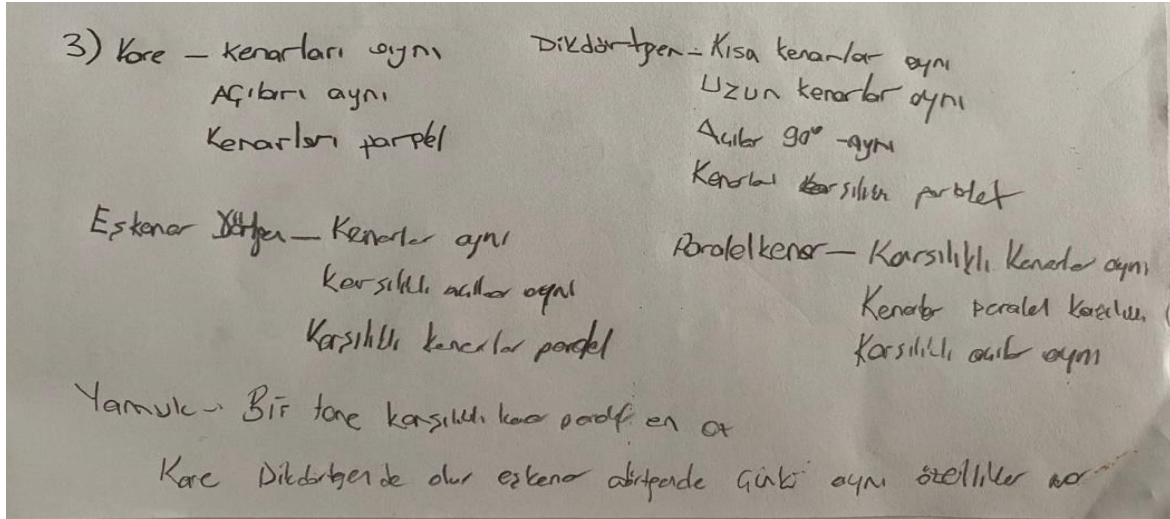 3) Kare – kenarları aynı
Açıları aynı
Kenarları paralel
Dikdörtgen – Kısa kenarlar aynı
Uzun kenarlar aynı
Açılar 90° – aynı
Kenarlar karşılıklı paralel
Eşkenar Dörtgen – Kenarlar aynı
Karşılıklı açılar aynı
Karşılıklı kenarlar paralel
Paralelkenar – Karşılıklı Kenarlar aynı
Kenarlar paralel karşılıklı
Karşılıklı açılar aynı
Yamuk – Bir tane karşılıklı kenar paralel en az
Kare Dikdörtgende olur eşkenar dörtgende Çünkü aynı özellikler var